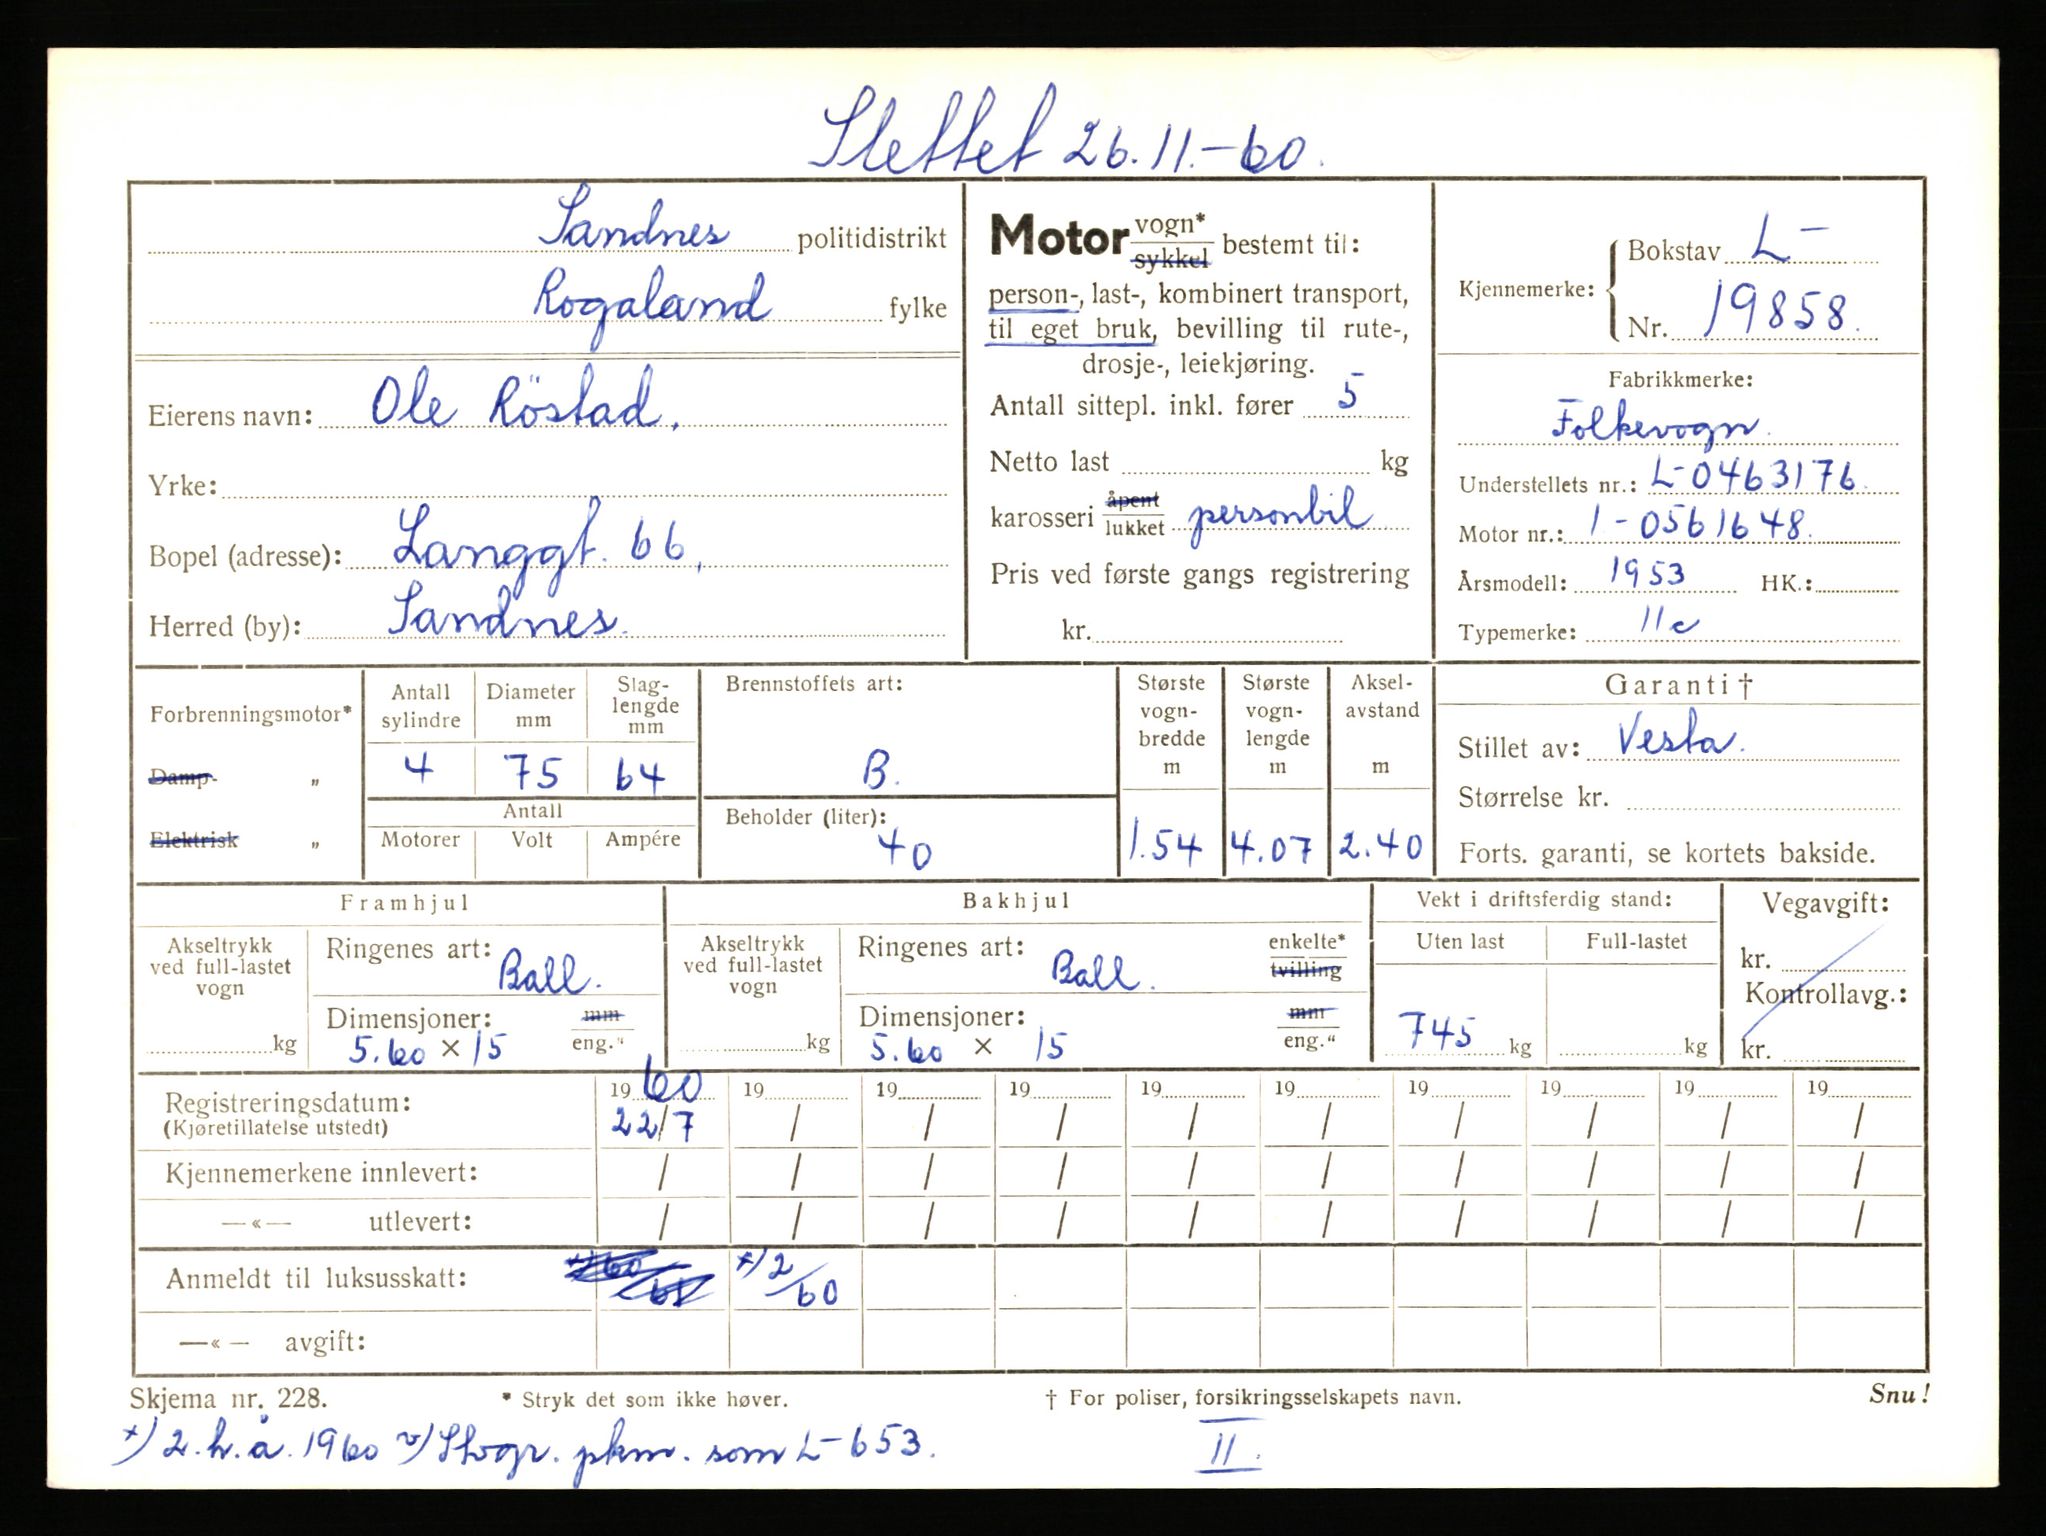 Slettet 26.11.-60.
Sandnes politidistrikt
Rogaland fylke
Eierens navn: Ole Röstad.
Yrke:
Bopel (adresse): Langgt. 66,
Herred (by): Sandnes.
Motor vogn* sykkel bestemt til:
person-, last-, kombinert transport,
til eget bruk, bevilling til rute-,
drosje-, leiekjøring.
Antall sittepl. inkl. fører 5
Netto last kg
karosseri åpent lukket personbil
Pris ved første gangs registrering
kr.
Kjennemerke: Bokstav L-
Nr. 19858.
Fabrikkmerke:
Folkevogn.
Understellets nr.: L-0463176.
Motor nr.: 1-0561648.
Årsmodell: 1953 HK.:
Typemerke: 11c
Forbrenningsmotor*
Damp- „
Elektrisk „
Antall sylindre Diameter mm Slaglengde mm
4 75 64
Antall
Motorer Volt Ampére
Brennstoffets art:
B.
Beholder (liter):
40
Største vognbredde m Største vognlengde m Akselavstand m
1.54 4.07 2.40
Garanti †
Stillet av: Vesta.
Størrelse kr.
Forts. garanti, se kortets bakside.
Framhjul
Akseltrykk ved full-lastet vogn
kg
Ringenes art: Ball.
Dimensjoner: mm
5.60 × 15 eng.“
Bakhjul
Akseltrykk ved full-lastet vogn
kg
Ringenes art: Ball. enkelte* tvilling
Dimensjoner: mm
5.60 × 15 eng.“
Vekt i driftsferdig stand:
Uten last Full-lastet
745 kg kg
Vegavgift:
kr.
Kontrollavg.:
kr.
19 60 19 19 19 19 19 19 19 19 19
Registreringsdatum: 22/7 / / / / / / / / /
(Kjøretillatelse utstedt)
Kjennemerkene innlevert: / / / / / / / / / /
—«— utlevert: / / / / / / / / / /
Anmeldt til luksusskatt: x) 2/60
—«— avgift:
Skjema nr. 228. * Stryk det som ikke høver. † For poliser, forsikringsselskapets navn. Snu!
x) 2. h. å. 1960 pkm. som L-653.
II.